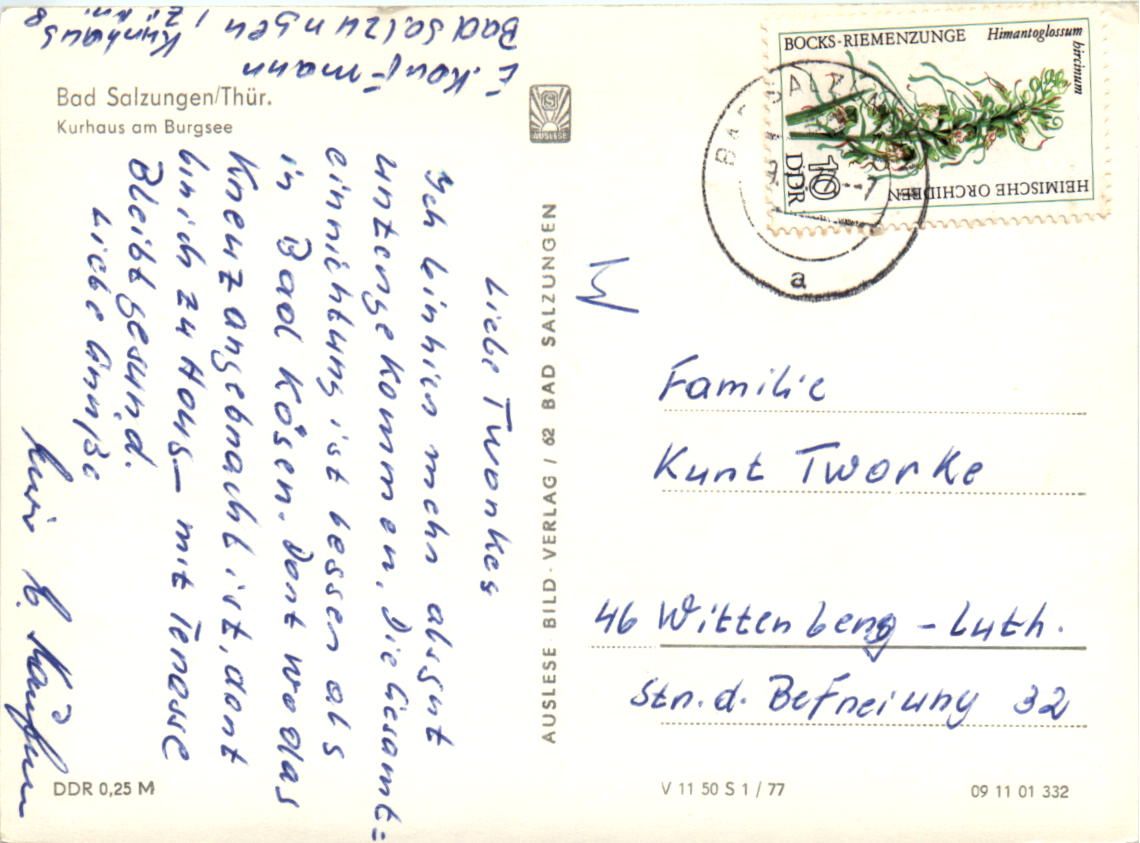 E. Kauffmann
Bad Salzungen,
Kurhaus
Bad Salzungen/Thür.
Kurhaus am Burgsee
AUSLESE
Liebe Tworkes
Ich bin hier mehr als gut
untergekommen. Die Gesamt=
einrichtung ist besser als
in Bad Kösen. Dort wo das
Kreuz angebracht ist, dort
bin ich zu Haus – mit Terasse
Bleibt gesund.
Liebe Grüße
DDR 0,25 M
AUSLESE-BILD-VERLAG / 62 BAD SALZUNGEN
BOCKS-RIEMENZUNGE Himantoglossum hircinum
HEIMISCHE ORCHIDEEN
10
DDR
a
Familie
Kurt Tworke
46 Wittenberg – Luth.
Str. d. Befreiung 32
V 11 50 S 1 / 77
09 11 01 332